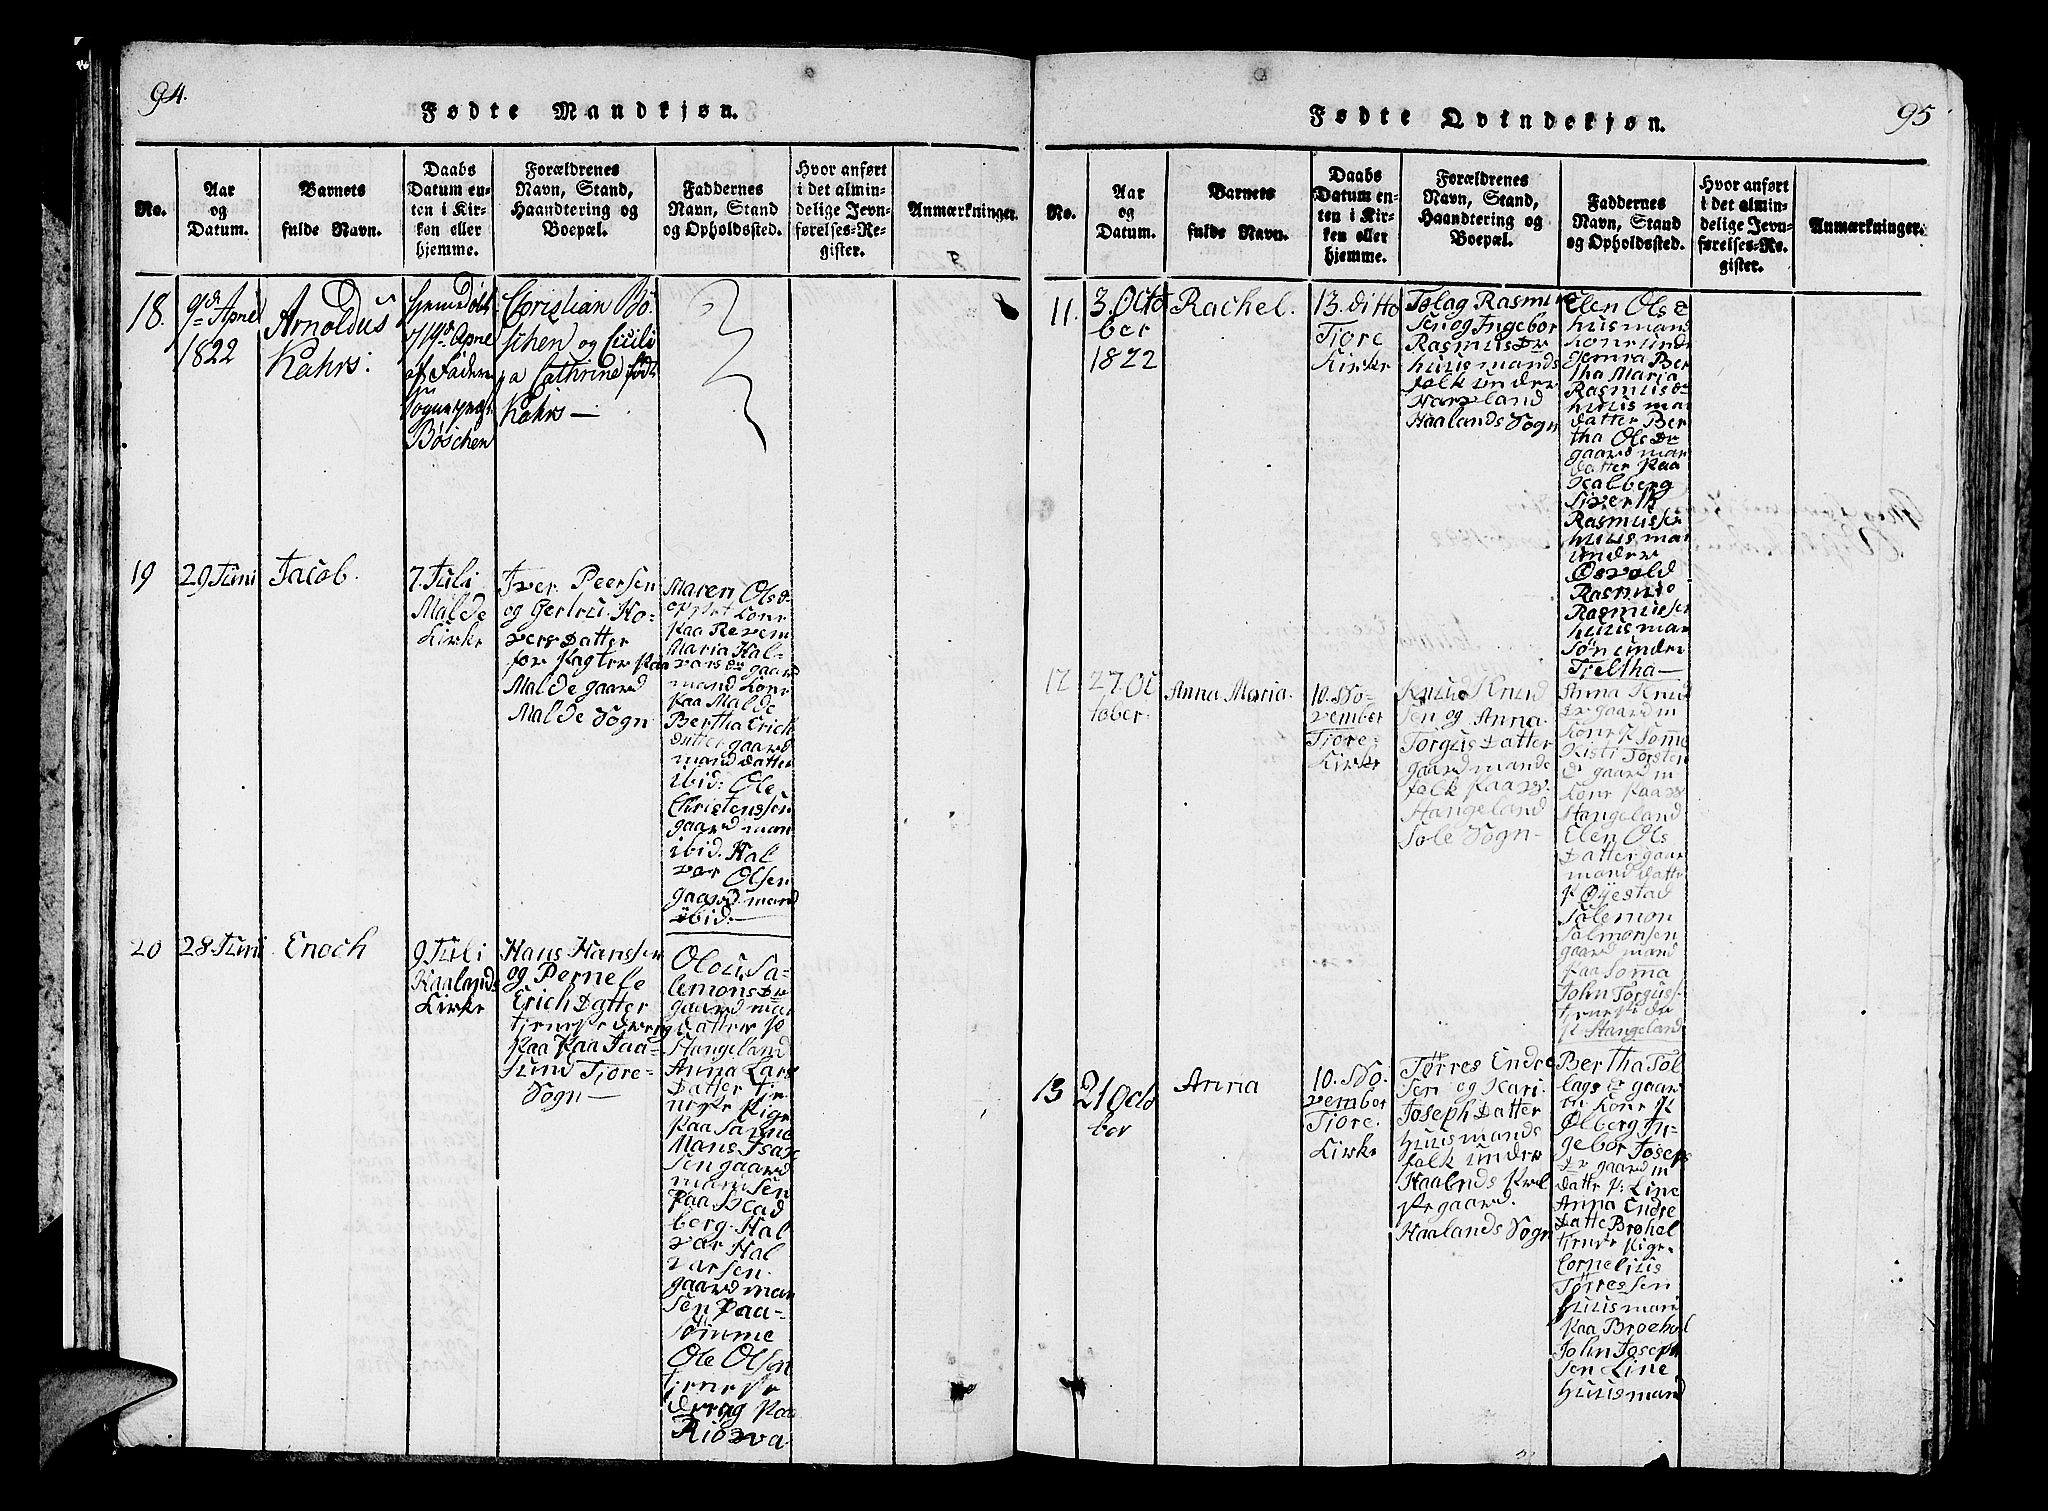 94.
Fødte Mandkjøn.
No.
Aar
og
Datum.
Barnets
fulde Navn.
Daabs
Datum en-
ten i Kir-
ken eller
hjemme.
Forældrenes
Navn, Stand,
Haandtering og
Boepæl.
Faddernes
Navn, Stand
og Opholdssted.
Hvor anført
i det almin-
delige Jevn-
førelses-Re-
gister.
Anmærkninger.
18.
9de April
1822
Arnoldus
Kahrs:
hjemedøbt
af Fader
Sognepræst
Bøschen
Christian Bø-
schen og Cicili
a Cathrine født
Kahrs —
19
29 Juni
Jacob.
7. Juli
Malde
Kirke
Iver Peersen
og Gertru Ho-
vers Datter
for Pagter paa
Malde gaard
Malde Sogn
Maren Olsd
Kone
paa Revem
Maria Hal-
vors Dr gaard
mand Kone
paa Malde
Bertha Erich
datter gaard
mand datter
ibid: Ole
Christenssen
gaard man
ibid. Hal
vor Olsen
gaard mand
ibid.—
20
28 Juni
Enoch
9 Juli
Haalands
Kirke
Hans Hanssen
og Pernele
Erich Datter
tjeneste dreng
paa Paa Jaa-
sund Tjore-
Sogn —
Olou Sa-
lemons Dr
gaard man
datter p
Stangeland
Anna Lars
Datter tje
neste Pige
paa Sømme
Mans Isax
sen gaard
man sen
paa Stad
berg. Hal
vor Hal
varsen
gaard man
sen paa-
Sømme
Ole Olsen
tjeneste
dreng paa
Risva
95
Fødte Qvindekjøn.
No.
Aar
og
Datum.
Barnets
fulde Navn.
Daabs
Datum en-
ten i Kir-
ken eller
hjemme.
Forældrenes
Navn, Stand,
Haandtering og
Boepæl.
Faddernes
Navn, Stand
og Opholdssted.
Hvor anført
i det almin-
delige Jevn-
førelses-Re-
gister.
Anmærkninger.
11.
3. Octo
ber
1822
Rachel.
13. ditto
Tiore
Kirke
Tølag Rasmu
sen og Ingebor
Rasmus Dr
huusmands
folk under
Harveland
Haalands Sogn
Elen Ols D
husmands
Kone under
Jemra Ber
tha Maria
Rasmus D
huusman
datter Ber
tha Ols Dr
gaard man
datter paa
Kalberg
Sivert
Rasmussen
huusman
under
Osvold
Rasmus
Rasmussen
huusman
Søn under
Tjeltha —
12
27 Oc
tober.
Anna Maria.
10. No-
vember
Tiore-
Kirke
Knud Knud
sen og Anna
Torgus Datter
gaard mands
folk paa
Stangeland
Sole Sogn —
Anna Knud
Dr gaard m
Kone p Sømme
Kisti Torsten
D gaard m
Kone paa
Stangeland
Elen Ols
Datter gaar
mand datte
p Øyestad
Salemon
Salmonsen
gaard mand
paa Somma
John Torguss
tjeneste dr
p Stangeland
13
21 Octo
ber
Anna
10. No.
vember
Tiore.
Kirke
Tørres Endre
sen og Kari
Joseph Datter
Huusmands
folk under
Haalands Præ
stegaard.
Haalands Sogn
Bertha Tol
lags Dr gaar
m Kone p
Ølberg In-
gebor Joseps
Dr gaard m
datte p: Line
Anna Endre
Datte Brøhel
tjeneste Pige.
Cornelius
Tørressen
Huusman
paa Broehol
John Joseph
sen Line
Huusmand